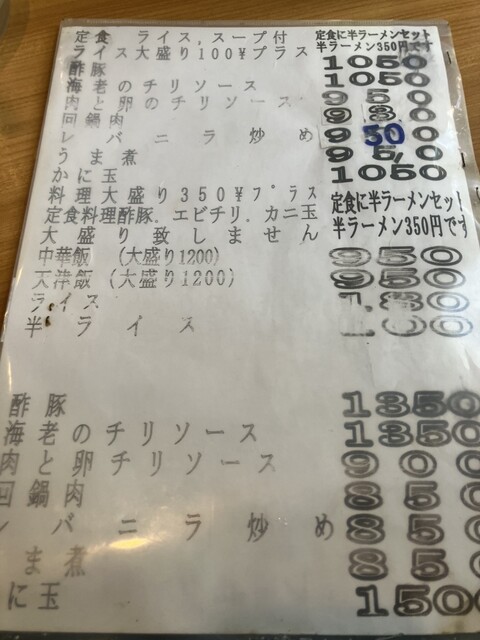 定食 ライス,スープ付
定食に半ラーメンセット
ライス大盛り100¥プラス
半ラーメン350円です
酢豚 1050
海老のチリソース 1050
肉と卵のチリソース 950
回鍋肉
レバニラ炒め
うま煮 950
かに玉 1050
料理大盛り350¥プラス
定食に半ラーメンセット!
定食料理酢豚.エビチリ.カニ玉
半ラーメン350円です
大盛り致しません
中華飯 (大盛り1200) 950
天津飯 (大盛り1200) 950
ライス
半ライス
酢豚 1350
海老のチリソース 1350
肉と卵チリソース 900
回鍋肉 850
レバニラ炒め 850
ま煮 850
に玉 1500